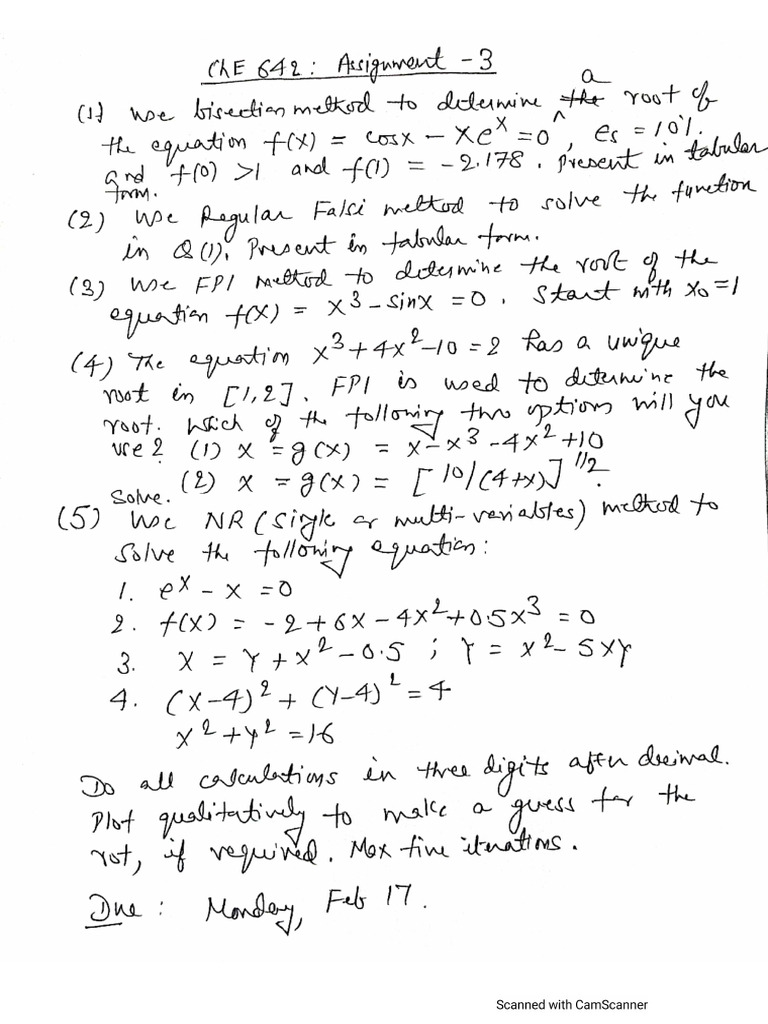 ChE 642: Assignment -3
a
(1) Use bisection method to determine the root of
the equation f(x) = cosx - xe^x = 0, es = 10%.
and f(0) >1 and f(1) = -2.178. Present in tabular
form.
(2) Use Regular Falsi method to solve the function
in Q(1). Present in tabular form.
(3) Use FPI method to determine the root of the
equation f(x) = x^3 - sinx = 0. Start with x0=1
(4) The equation x^3+4x^2-10=2 has a unique
root in [1,2]. FPI is used to determine the
root. Which of the following two options will you
use? (1) x = g(x) = x-x^3-4x^2+10
(2) x = g(x) = [10/(4+x)]^1/2.
Solve.
(5) Use NR (single or multi-variables) method to
solve the following equation:
1. e^x - x = 0
2. f(x) = -2+6x-4x^2+0.5x^3 = 0
3. x = y + x^2 - 0.5 ; y = x^2 - 5xy
4. (x-4)^2 + (y-4)^2 = 4
x^2+y^2 = 16
Do all calculations in three digits after decimal.
Plot qualitatively to make a guess for the
rot, if required. Max five iterations.
Due: Monday, Feb 17.
Scanned with CamScanner